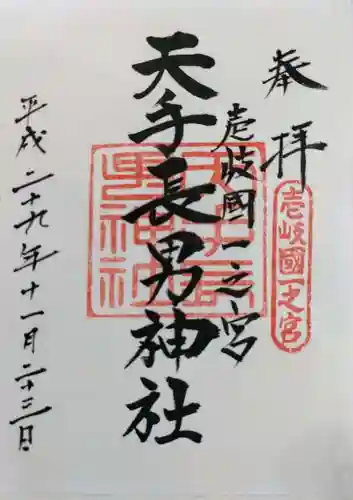 奉拝
壱岐國一之宮
壱岐國一之宮
天手長男神社
平成二十九年十一月二十三日